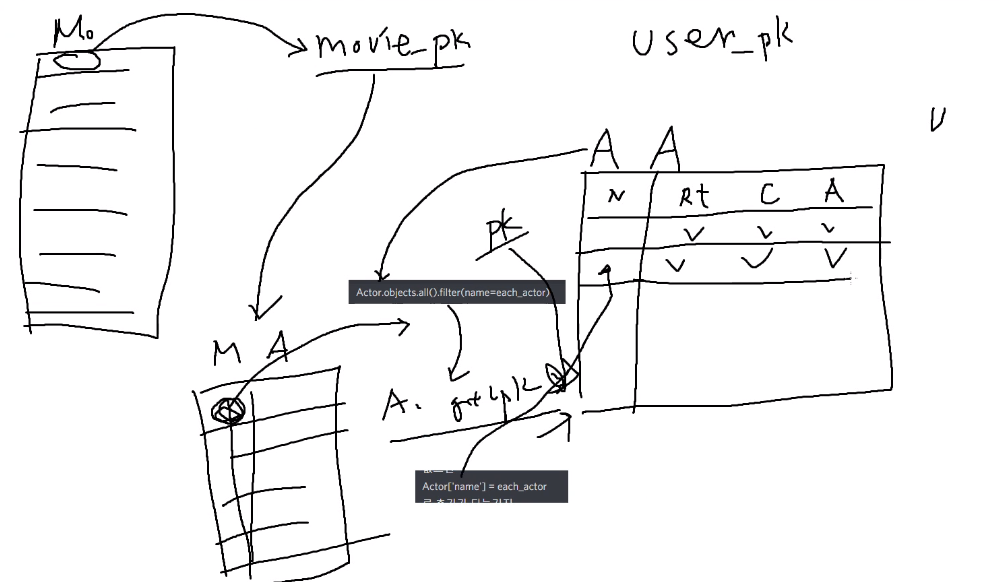 Mo
movie_pk
user_pk
U
A A
N Rt C A
pk
Actor.objects.all().filter(name=each_actor)
M A
A. get pk
Actor['name'] = each_actor